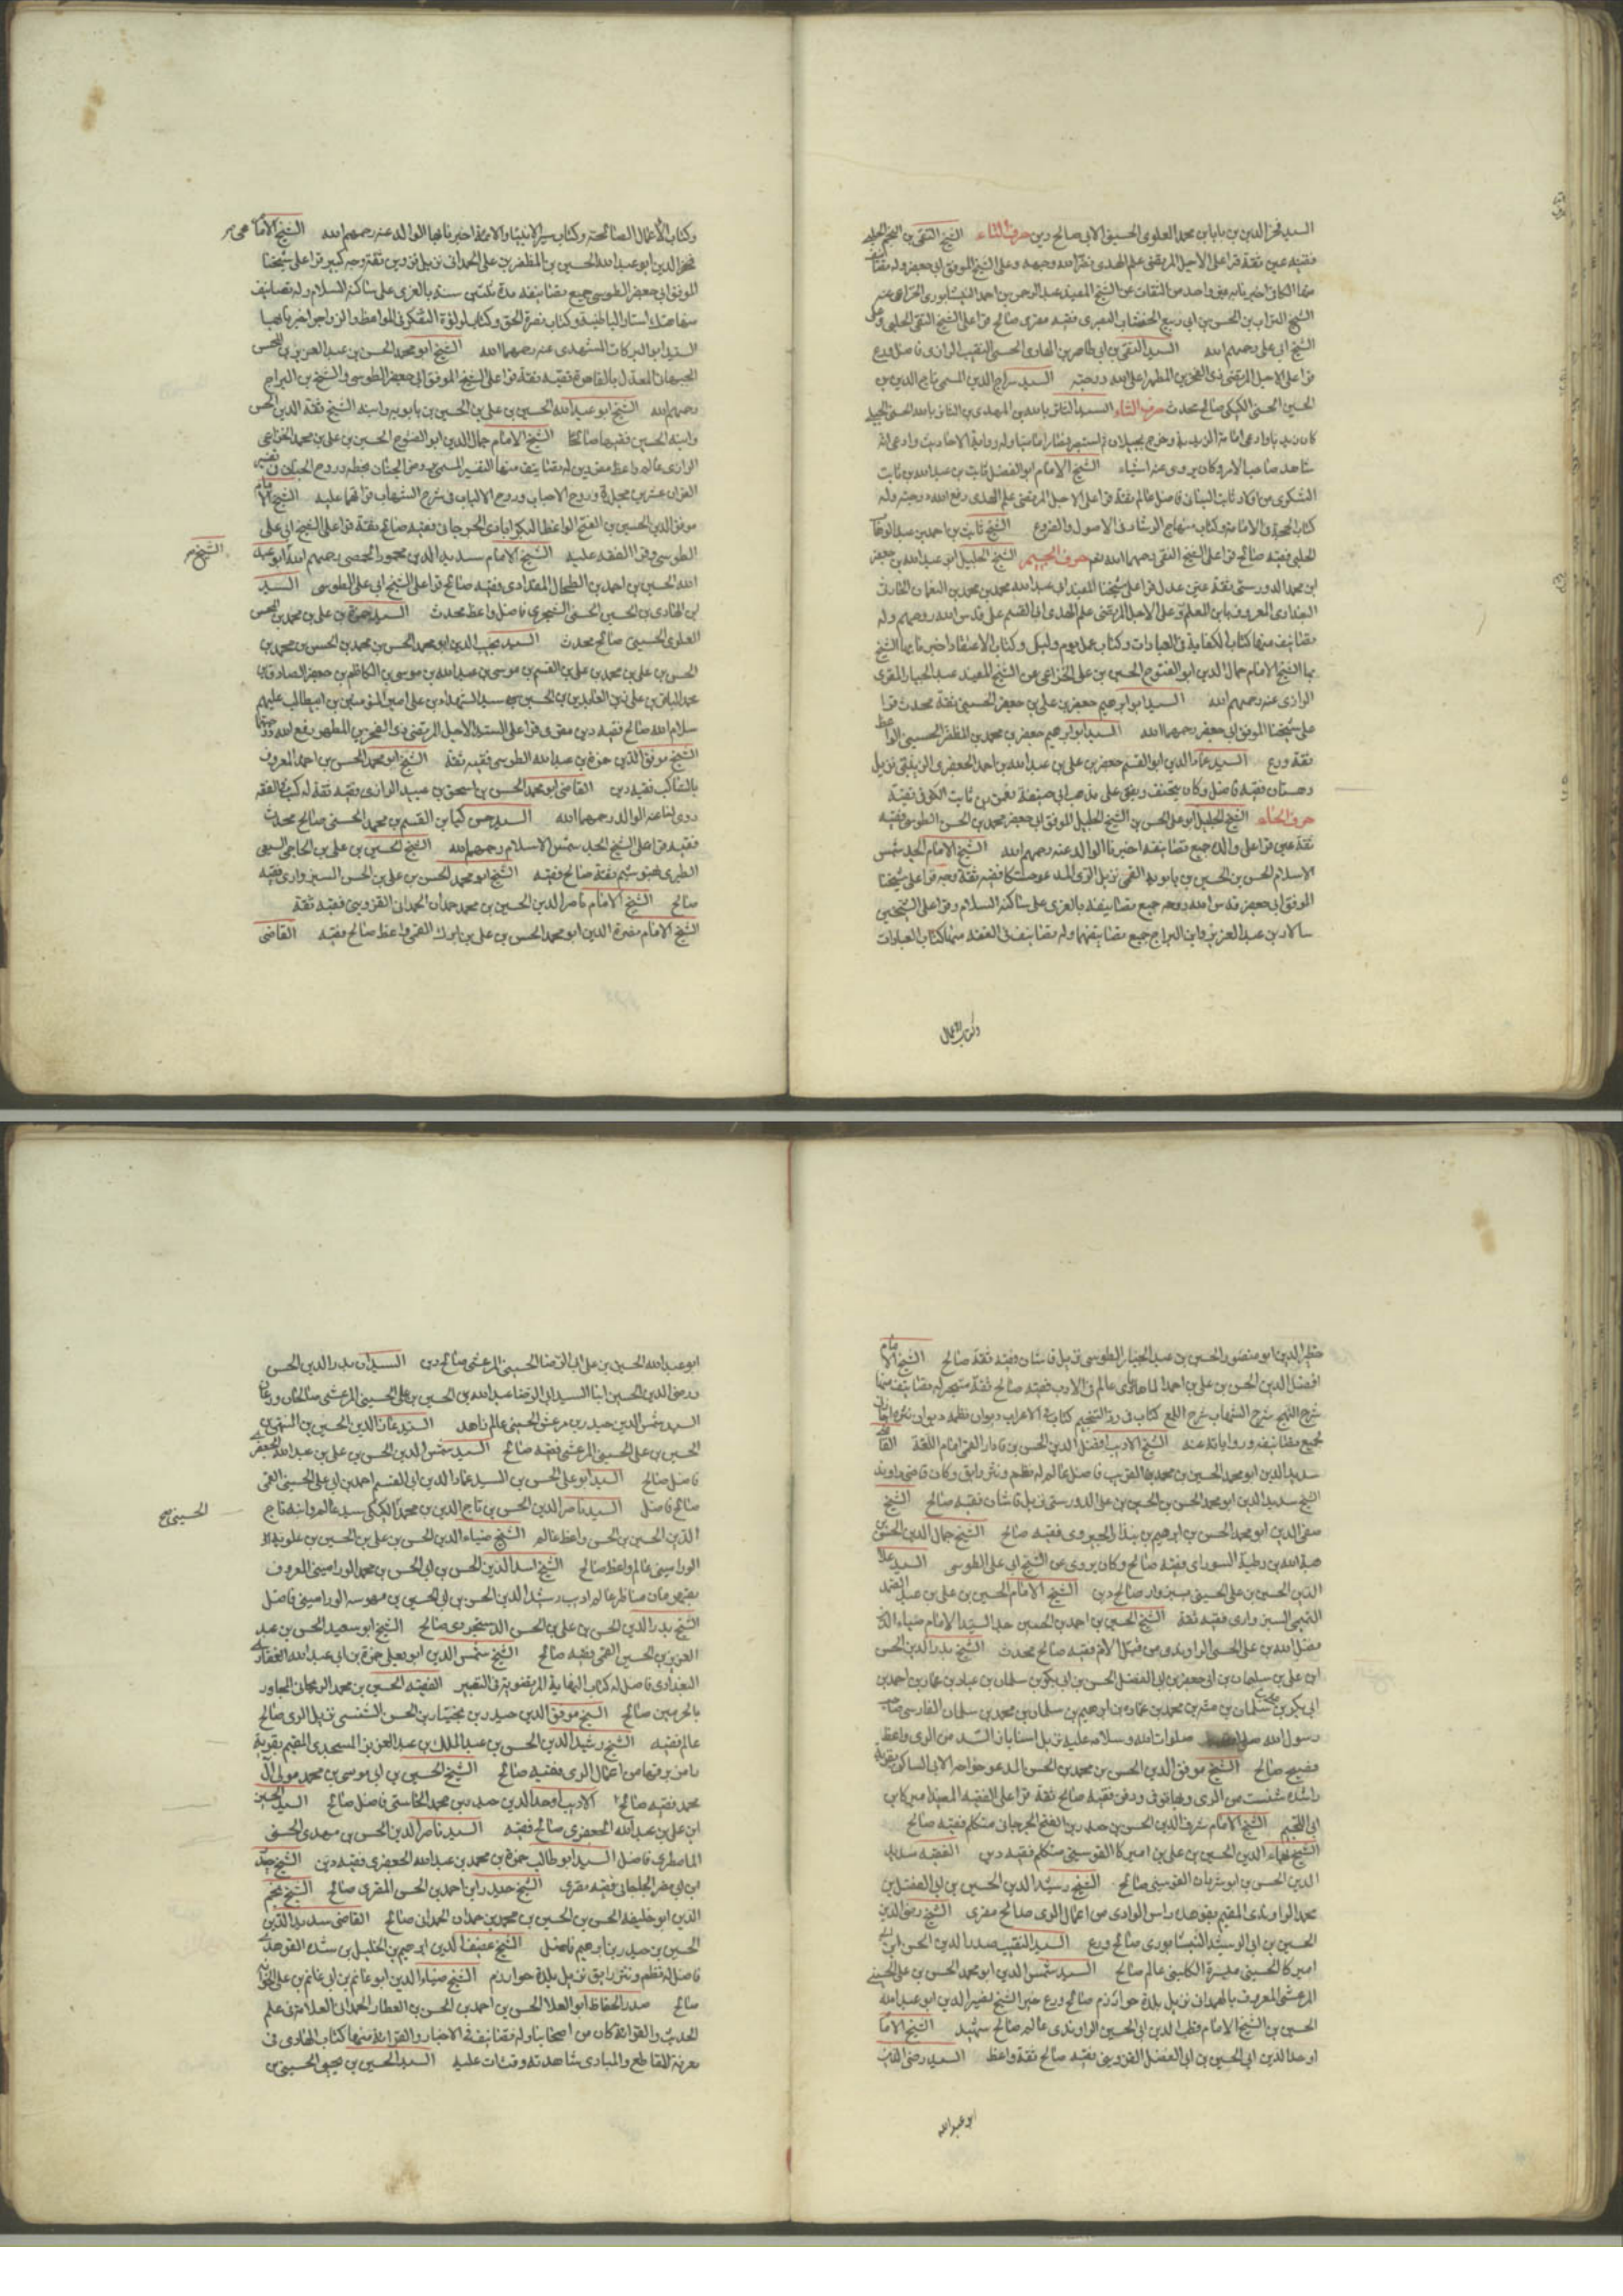 السيد فخر الدين بن بابا بن محمد العلوي الحسيني الآبي صالح دين حرف التاء الشيخ التقي بن النجم الحلبي
فقيه عين ثقة قرا على الاجل المرتضى علم الهدى نضر الله وجهه وعلى الشيخ الموفق ابي جعفر وله تصانيف
منها الكافي اخبرنا به غير واحد من الثقات عن الشيخ المفيد عبد الرحمن بن احمد النيسابوري الخزاعي عنه
الشيخ التواب بن الحسن بن ابي ربيع الخشاب البصري فقيه مقرى صالح قرا على الشيخ التقي الحلبي وعلى
الشيخ ابي علي رحمهم الله السيد التقي بن ابي طاهر بن الهادي الحسني النقيب الرازي فاضل ورع
قرا على الاجل المرتضى ذي الفخرين المطهر اعلى الله درجته السيد سراج الدين المسمى تاج الدين بن
الحسين الحسني الكيكي صالح محدث حرف الثاء السيد الثائر بالله بن المهدي بن الثائر بالله الحسني الجيلي
كان زيديا وادعى امامة الزيدية وخرج بجيلان ثم استبصر فصار اماميا وله رواية الاحاديث وادعى انه
شاهد صاحب الامر وكان يروي عنه اشياء الشيخ الامام ابو الفضل ثابت بن عبد الله بن ثابت
اليشكري من اولاد ثابت البناني فاضل عالم ثقة قرا على الاجل المرتضى علم الهدى رفع الله درجته وله
كتاب الحجة في الامامة وكتاب منهاج الرشاد في الاصول والفروع الشيخ ثابت بن احمد بن عبد الوهاب
الحلبي فقيه صالح قرا على الشيخ التقي رحمهم الله نعم حرف الجيم الشيخ الجليل ابو عبد الله بن جعفر
ابن محمد الدوريستي ثقة عين عدل قرا على شيخنا المفيد ابي عبد الله محمد بن محمد بن النعمان الحارثي
البغدادي المعروف بابن المعلم وعلى الاجل المرتضى علم الهدى ابي القسم علي قدس الله روحهم وله
تصانيف منها كتاب الكفاية في العبادات وكتاب عمل يوم وليلة وكتاب الاعتقاد اخبرنا بها الشيخ
بها الشيخ الامام جمال الدين ابو الفتوح الحسين بن علي الخزاعي عن الشيخ المفيد عبد الجبار المقرى
الرازي عنه رحمهم الله السيد ابو ابرهيم جعفر بن علي بن جعفر الحسيني ثقة محدث قرا
على شيخنا الموفق ابي جعفر رحمهما الله السيد ابو ابرهيم جعفر بن محمد بن المظفر الحسيني الواعظ
ثقة ورع السيد عماد الدين ابو القسم جعفر بن علي بن عبد الله بن احمد الجعفري الزينبي نزيل
دهستان فقيه فاضل وكان يتحنف ويفتي على مذهب ابي حنيفة نعمن بن ثابت الكوفي تقية
حرف الحاء الشيخ الجليل ابو علي الحسن بن الشيخ الجليل الموفق ابي جعفر محمد بن الحسن الطوسي فقيه
ثقة عين قرا على والده جميع تصانيفه اخبرنا الوالد عنه رحمهم الله الشيخ الامام الجد شمس
الاسلام الحسن بن الحسين بن بابويه القمي نزيل الري المدعو حسكا فقيه ثقة وجه قرا على شيخنا
الموفق ابي جعفر قدس الله روحه جميع تصانيفه بالغري على ساكنه السلام وقرا على الشيخين
سالار بن عبد العزيز وابن البراج جميع تصانيفهما وله تصانيف في الفقه منها كتاب العبادات
وكتاب الاعمال
وكتاب الاعمال الصالحة وكتاب سير الانبياء والائمة اخبرنا بها الوالد عنه رحمهم الله الشيخ الامام
فخر الدين ابو عبد الله الحسين بن المظفر بن علي الحمداني نزيل قزوين ثقة وجه كبير قرا على شيخنا
الموفق ابي جعفر الطوسي جميع تصانيفه مدة ثلثين سنة بالغري على ساكنه السلام وله تصانيف
منها هتك استار الباطنية وكتاب نصرة الحق وكتاب لؤلؤة التفكر في المواعظ والزواجر اخبرنا بها
السيد ابو البركات المشهدي عنه رحمهما الله الشيخ ابو محمد الحسن بن عبد العزيز بن المحسن
الجبهاني المعدل بالقاهرة فقيه ثقة قرا على الشيخ الموفق ابي جعفر الطوسي والشيخ بن البراج
رحمهم الله الشيخ ابو عبد الله الحسين بن علي بن الحسين بن بابويه وابنه الشيخ ثقة الدين الحسن
وابنه الحسين فقيها صالحا الشيخ الامام جمال الدين ابو الفتوح الحسين بن علي بن محمد الخزاعي
الرازي عالم واعظ مفسر دين له تصانيف منها التفسير المسمى روض الجنان وروح الجنان في تفسير
القران عشرين مجلدة وروح الاحباب وروح الالباب في شرح الشهاب قراتهما عليه الشيخ الامام
موفق الدين الحسين بن الفتح الواعظ البكرابادي الجرجاني فقيه صالح ثقة قرا على الشيخ ابي علي
الطوسي وقرا الفقه عليه الشيخ الامام سديد الدين محمود الحمصي رحمهم الله ابو عبد
الشيخ
الله الحسين بن احمد بن الطحال المقدادي فقيه صالح قرا على الشيخ ابي علي الطوسي السيد
ابن الهادي بن الحسين الحسني الشجري فاضل واعظ محدث السيد حمزة بن علي بن محمد بن المحسن
العلوي الحسيني صالح محدث السيد نجيب الدين ابو محمد الحسن بن محمد بن الحسن بن محمد بن
الحسن بن علي بن محمد بن علي بن القسم بن موسى بن عبد الله بن موسى الكاظم بن جعفر الصادق بن
محمد الباقر بن علي زين العابدين بن الحسين سيد الشهداء بن علي امير المؤمنين بن ابي طالب عليهم
سلام الله صالح فقيه دين مقرى قرا على السيد الاجل المرتضى ذي الفخرين المطهر رفع الله درجتهما
الشيخ موفق الدين حمزة بن عبد الله الطوسي فقيه ثقة الشيخ ابو محمد الحسن بن احمد المعروف
بالساكب فقيه دين القاضي ابو محمد الحسن بن اسحق بن عبيد الرازي فقيه ثقة له كتب في الفقه
روى لنا عنه الوالد رحمهما الله السيد حسن كيا بن القسم بن محمد الحسني صالح محدث
فقيه قرا على الشيخ الجد شمس الاسلام رحمهم الله الشيخ الحسين بن علي بن الحاجي السبيعي
الطبري بهوسم ثقة صالح فقيه الشيخ ابو محمد الحسن بن علي بن الحسن السبزواري فقيه
صالح الشيخ الامام ناصر الدين الحسين بن محمد حمدان الحمداني القزويني فقيه ثقة
الشيخ الامام نصرة الدين ابو محمد الحسن بن علي بن زيرك القمي واعظ صالح فقيه القاضي
خطير الدين ابو منصور الحسين بن عبد الجبار الطوسي نزيل قاشان فقيه ثقة صالح الشيخ الامام
افضل الدين الحسن بن علي بن احمد الماهابادي عالم في الادب فقيه صالح ثقة متبحر له تصانيف منها
شرح النهج شرح الشهاب شرح اللمع كتاب في رد التنجيم كتاب في الاعراب ديوان نظمه ديوان نثره اخبرنا
بجميع تصانيفه ورواياته عنه الشيخ الاديب افضل الدين الحسن بن فادار القمي امام اللغة القاضي
سديد الدين ابو محمد الحسين بن محمد القريب فاضل عالم له نظم ونثر رايق وكان قاضي راوند
الشيخ سديد الدين ابو محمد الحسن بن الحسين بن علي الدوريستي نزيل قاشان فقيه صالح الشيخ
صفي الدين ابو محمد الحسن بن ابرهيم بن بندار الجيروي فقيه صالح الشيخ جمال الدين الحسين بن
هبة الله بن رطبة السوراوي فقيه صالح وكان يروي عن الشيخ ابي علي الطوسي السيد علاء
الدين الحسين بن علي الحسيني سبزوار صالح دين الشيخ الامام الحسين بن علي بن عبد الصمد
التميمي السبزواري فقيه ثقة الشيخ الحسين بن احمد بن الحسين جد السيد الامام ضياء الدين
فضل الله بن علي الحسني الراوندي من قبل الام فقيه صالح محدث الشيخ بدر الدين الحسن
ابن علي بن سلمان بن ابي جعفر بن ابي الفضل الحسن بن ابي بكر بن سلمان بن عباد بن عمار بن احمد بن
ابي بكر بن علي بن سلمان بن منبه بن محمد بن عمارة بن ابرهيم بن سلمان بن محمد بن سلمان الفارسي صاحب
رسول الله صلوات الله وسلامه عليه نزيل اسناباد السد من الري واعظ
فصيح صالح الشيخ موفق الدين الحسن بن محمد بن الحسن المدعو خواجه الآبي الساكن بقرية
راشدة شنست من الري وبها توفي ودفن فقيه صالح ثقة قرا على الفقيه المفيد اميركا بن
ابي اللجيم الشيخ الامام شرف الدين الحسن بن حيدر بن ابي الفتح الجرجاني متكلم فقيه صالح
الشيخ بهاء الدين الحسين بن علي بن اميركا القوسيني متكلم فقيه دين الفقيه سديد
الدين الحسن بن انوشروان القوسيني صالح الشيخ رشيد الدين الحسين بن ابي الفضل بن
محمد الراوندي المقيم بقوهده راس الوادي من اعمال الري صالح مقرى الشيخ رضي الدين
الحسين بن ابي الرشيد النيسابوري صالح ورع السيد النقيب صدر الدين الحسن بن ابي
اميركا الحسيني ميسرة الكليني عالم صالح السيد شمس الدين ابو محمد الحسن بن علي الحسيني
المرعشي المعروف بالهمداني نزيل بلدة خوارزم صالح ورع خير الشيخ نصير الدين ابو عبد الله
الحسين بن الشيخ الامام قطب الدين ابي الحسين الراوندي عالم صالح شهيد الشيخ الامام
اوحد الدين ابي الحسين بن ابي الفضل القزويني فقيه صالح ثقة واعظ السيد رضي الدين
ابو عبد الله
ابو عبد الله الحسين بن علي ابي الرضا الحسيني المرعشي صالح دين السيدان بدر الدين الحسن
ورضي الدين الحسين ابنا السيد ابي الرضا عبد الله بن الحسين بن علي الحسيني المرعشي صالحان ورعان
السيد شمس الدين حيدر بن مرعش الحسيني عالم زاهد السيد عماد الدين الحسين بن
الحسين بن علي الحسيني المرعشي فقيه صالح السيد شمس الدين الحسن بن علي بن عبد الله الجعفري
فاضل صالح السيد ابو علي الحسن بن السيد عماد الدين ابي القسم احمد بن ابي علي الحسيني القمي
صالح فاضل السيد ناصر الدين الحسن بن تاج الدين بن محمد الكيكي سيد عالم وابنه تاج
الحسيني صح
الدين الحسين بن الحسن واعظ عالم الشيخ ضياء الدين الحسن بن علي بن الحسين بن علويه
الوراميني عالم واعظ صالح الشيخ اسد الدين الحسن بن ابي الحسن بن محمد الوراميني المعروف
بقهرمان مناظر عالم اديب رشيد الدين الحسن بن ابي الحسين بن موسه الوراميني فاضل
الشيخ بدر الدين الحسن بن علي بن الحسن الدستجردي صالح الشيخ ابو سعيد الحسن بن عبد
العزيز بن الحسين القمي فقيه صالح الشيخ شمس الدين ابو يعلى حمزة بن ابي عبد الله الغفاري
البغدادي فاضل له كتاب النهاية المرتضوية في التعبير الفقيه الحسين بن محمد الريحاني المجاور
بالحرمين صالح الشيخ موفق الدين حيدر بن بختيار بن الحسن الشنسي نزيل الري صالح
عالم فقيه الشيخ رشيد الدين الحسن بن عبد الملك بن عبد العزيز المسجدي المقيم بقرية
رامن بوقها من اعمال الري فقيه صالح الشيخ الحسين بن ابي موسى بن محمد مولى آل
محمد فقيه صالح الاديب اوحد الدين حيدر بن محمد الخاستي فاضل صالح السيد الحسين
ابن علي بن عبد الله الجعفري صالح فقيه السيد ناصر الدين الحسن بن مهدي الحسني
المامطري فاضل السيد ابو طالب حمزة بن محمد بن عبد الله الجعفري فقيه دين الشيخ حيدر
ابن ابي نصر الجلجاني فقيه مقرى الشيخ حيدر ابن احمد بن الحسن المقرى صالح الشيخ نجم
الدين ابو خليفة الحسن بن الحسين بن محمد بن حمدان الحمداني صالح القاضي سديد الدين
الحسين بن حيدر بن ابرهيم فاضل الشيخ عفيف الدين ابرهيم بن الخليل بن شدة القوهدي
فاضل له نظم ونثر رايق نزيل بلدة خوارزم الشيخ ضياء الدين ابو غانم بن ابي غانم بن علي
صالح صدر الحفاظ ابو العلا الحسن بن احمد بن الحسن بن العطار الهمداني العلامة في علم
الحديث والقراءة كان من اصحابنا وله تصانيف في الاخبار والقراءة منها كتاب الهادي في
معرفة المقاطع والمبادي شاهدته وقرأت عليه السيد الحسين بن يحيى الحسيني بن